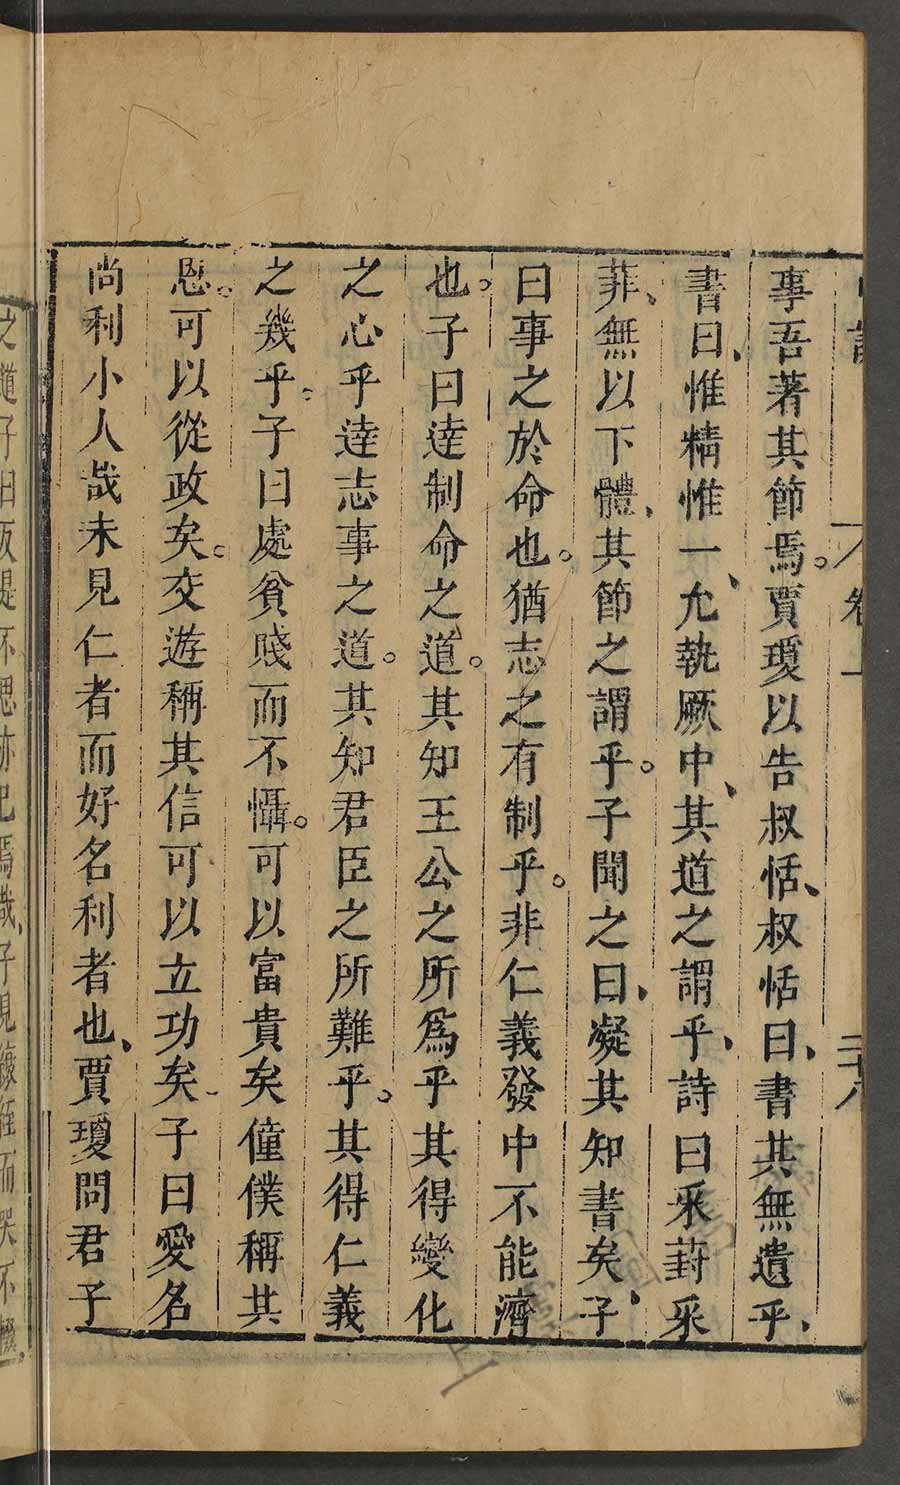 卷一 二十八
事吾著其節焉。賈瓊以告叔恬、叔恬曰、書其無遺乎、
書曰、惟精惟一、允執厥中、其道之謂乎、詩曰采葑采
菲、無以下體、其節之謂乎。子聞之曰、凝其知書矣、子
曰事之於命也。猶志之有制乎。非仁義發中不能濟
也。子曰達制命之道。其知王公之所爲乎其得變化
之心乎達志事之道。其知君臣之所難乎。其得仁義
之幾乎。子曰處貧賤而不懾。可以富貴矣僮僕稱其
恩。可以從政矣。交遊稱其信可以立功矣子曰愛名
尚利小人哉未見仁者而好名利者也、賈瓊問君子
之道子曰